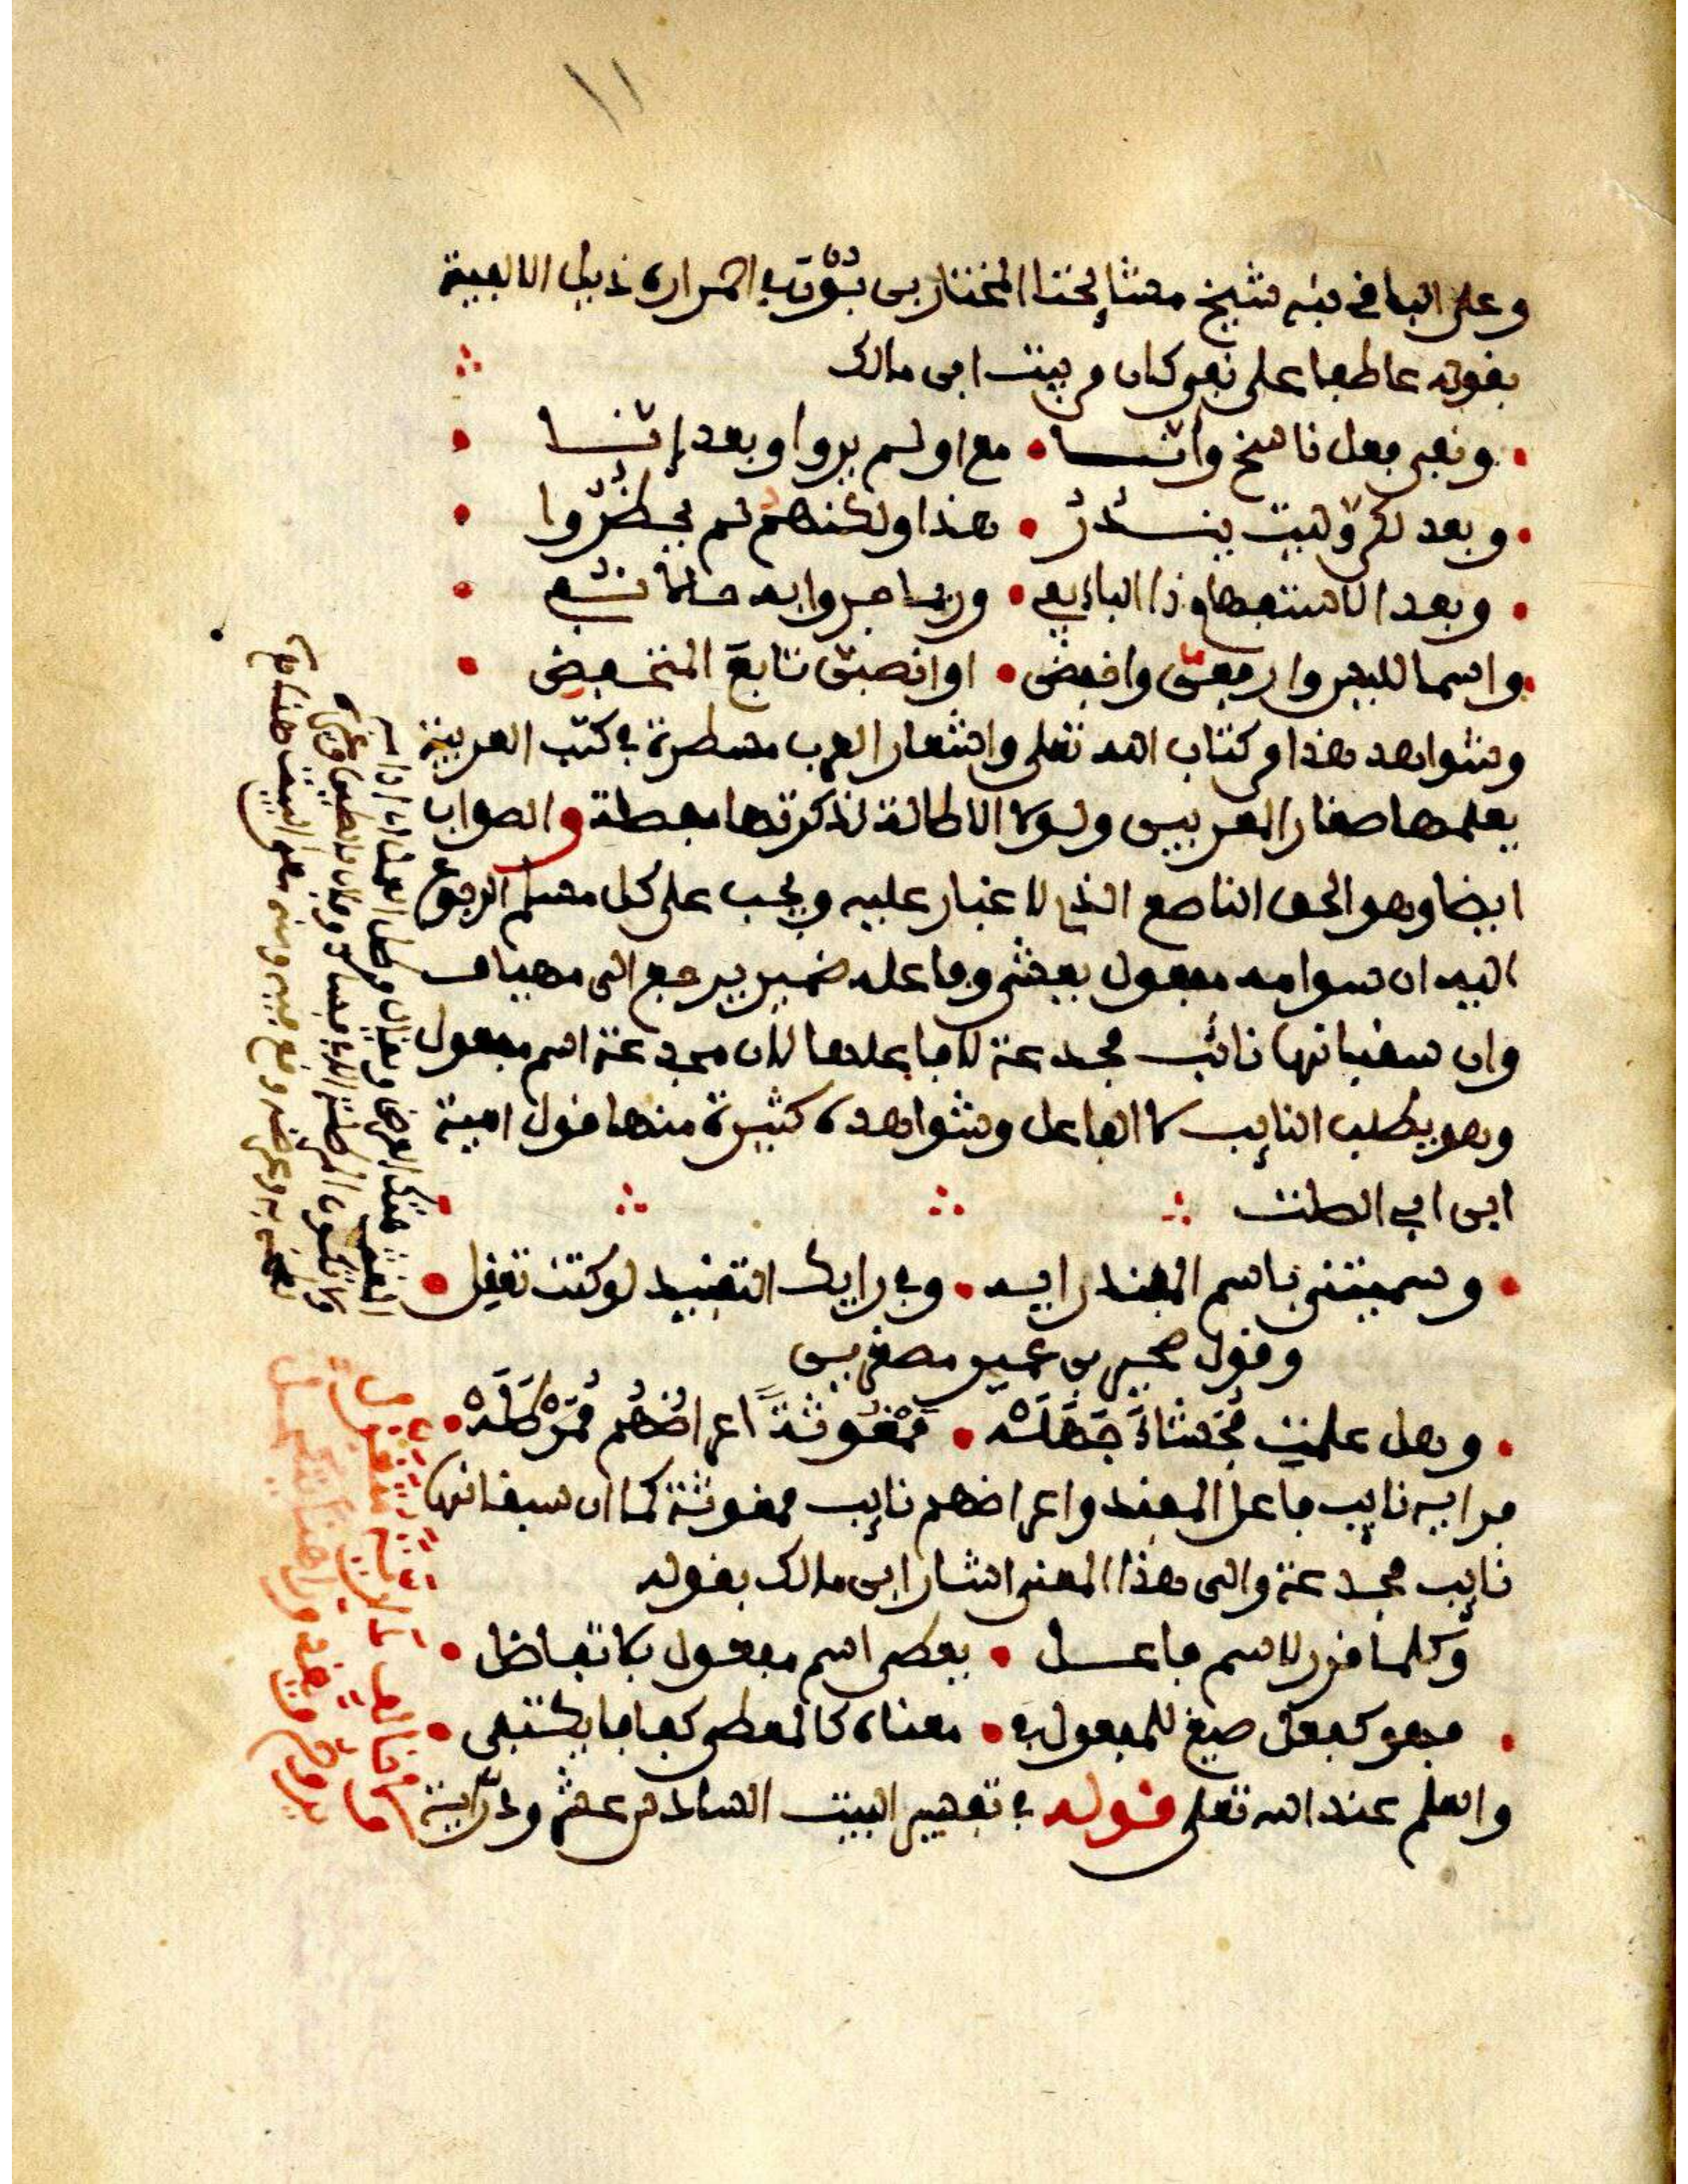 ١١
وعلى الباقى نبه شيخ مشايخنا المختار بن بون في احمراره ذيل الالفية
بقوله عاطفا على نفي كان من بيت ابن مالك
ونفي فعل ناسخ وأنسا • مع اولم يروا وبعد إنسا
وبعد لكن وليت ينــدر • هذا ولكنهم لم يحظروا
وبعد الاستفهام ذا البا يفي • وربما جروا به حالا نفي
واسما لليس وارفعن واخفض • او انصبن تابع المنخفض
وشواهد هذا من كتاب الله تعلى واشعار العرب مسطرة في كتب العربية
يعلمها صغار المعربين ولولا الاطالة لذكرتها مفصلة والصواب
ايضا وهو الحق الناصع الذي لا غبار عليه ويجب على كل مسلم الرجوع
اليه ان سوامه مفعول يعشي وفاعله ضمير يرجع الى مهياف
وان سقبانها نائب مجدعة لا فاعلها لان مجدعة اسم مفعول
وهو يطلب النايب لا الفاعل وشواهده كثيرة منها قول امية
ابن ابي الصلت
وسميتني باسم المفند رايه • وفي رايك التفنيد لو كنت تعقل
وقول صخير بن عمير مصغرين
وهل علمت فحشاء جهله • ممغوثة اعراضهم ممرطله
فرايه نايب فاعل المفند واعراضهم نايب ممغوثة كما ان سقبانها
نايب مجدعة والى هذا المعنى اشار ابن مالك بقوله
وكلما قرر لاسم فاعــل • يعطى اسم مفعول بلا تفاضل
فهو كفعل صيغ للمفعول في • معناه كالمعطى كفافا يكتفي
والعلم عند الله تعلى قوله في تفسير البيت السادس عشر ودارية